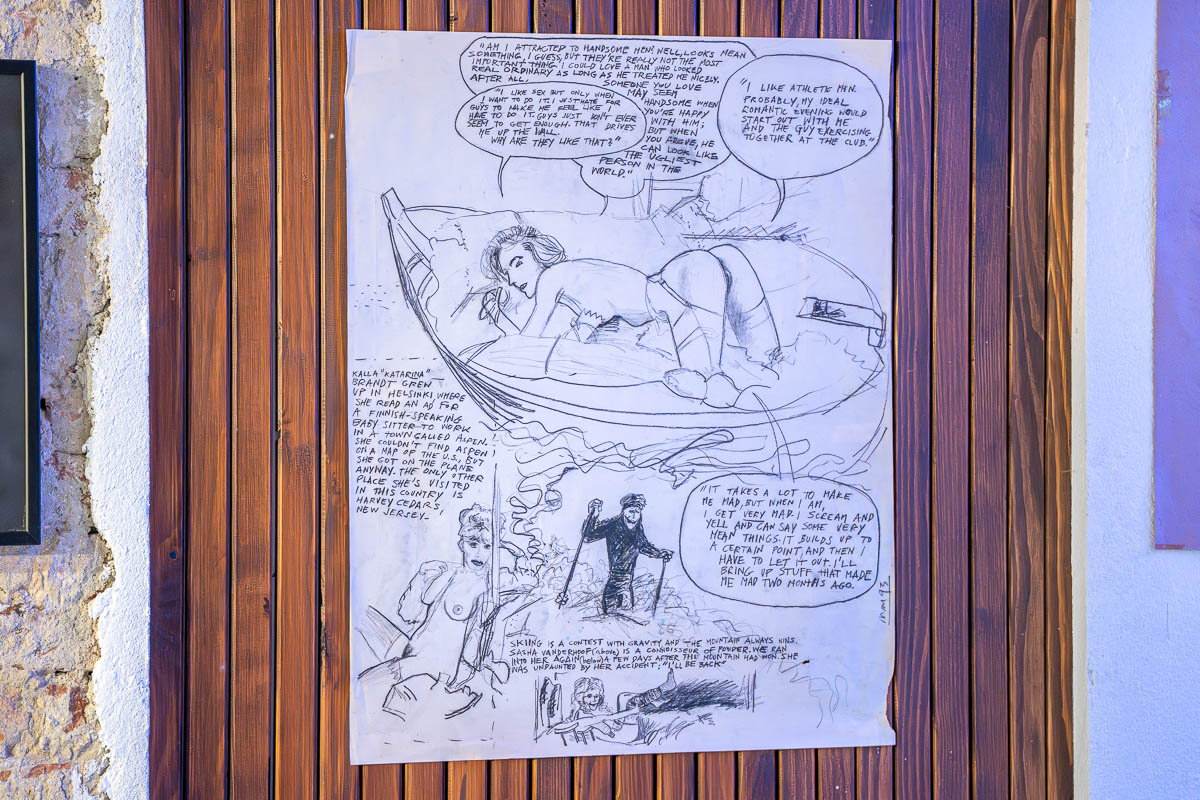 "AM I ATTRACTED TO HANDSOME MEN? WELL, LOOKS MEAN
SOMETHING, I GUESS, BUT THEY'RE REALLY NOT THE MOST
IMPORTANT THING. I COULD LOVE A MAN WHO LOOKED
REAL ORDINARY AS LONG AS HE TREATED ME NICELY.
AFTER ALL, SOMEONE YOU LOVE
MAY SEEM
HANDSOME WHEN
YOU'RE HAPPY
WITH HIM;
BUT WHEN
YOU ARGUE, HE
CAN LOOK LIKE
THE UGLIEST
PERSON IN THE
WORLD."
"I LIKE SEX BUT ONLY WHEN
I WANT TO DO IT. I JUST HATE FOR
GUYS TO MAKE ME FEEL LIKE I
HAVE TO DO IT. GUYS JUST DON'T EVER
SEEM TO GET ENOUGH. THAT DRIVES
ME UP THE WALL.
WHY ARE THEY LIKE THAT?"
"I LIKE ATHLETIC MEN.
PROBABLY, MY IDEAL
ROMANTIC EVENING WOULD
START OUT WITH ME
AND THE GUY EXERCISING
TOGETHER AT THE CLUB."
KALLA "KATARINA"
BRANDT GREW
UP IN HELSINKI WHERE
SHE READ AN AD FOR
A FINNISH-SPEAKING
BABY SITTER TO WORK
IN A TOWN CALLED ASPEN.
SHE COULDN'T FIND ASPEN
ON A MAP OF THE U.S., BUT
SHE GOT ON THE PLANE
ANYWAY. THE ONLY OTHER
PLACE SHE'S VISITED
IN THIS COUNTRY IS
HARVEY CEDARS,
NEW JERSEY_
"IT TAKES A LOT TO MAKE
ME MAD, BUT WHEN I AM,
I GET VERY MAD. I SCREAM AND
YELL AND CAN SAY SOME VERY
MEAN THINGS. IT BUILDS UP TO
A CERTAIN POINT, AND THEN I
HAVE TO LET IT OUT. I'LL
BRING UP STUFF THAT MADE
ME MAD TWO MONTHS AGO.
may 93
SKIING IS A CONTEST WITH GRAVITY AND THE MOUNTAIN ALWAYS WINS.
SASHA VANDERHOOF (above) IS A CONNOISSEUR OF POWDER. WE RAN
INTO HER AGAIN (below) A FEW DAYS AFTER THE MOUNTAIN HAD WON. SHE
WAS UNDAUNTED BY HER ACCIDENT: "I'LL BE BACK"